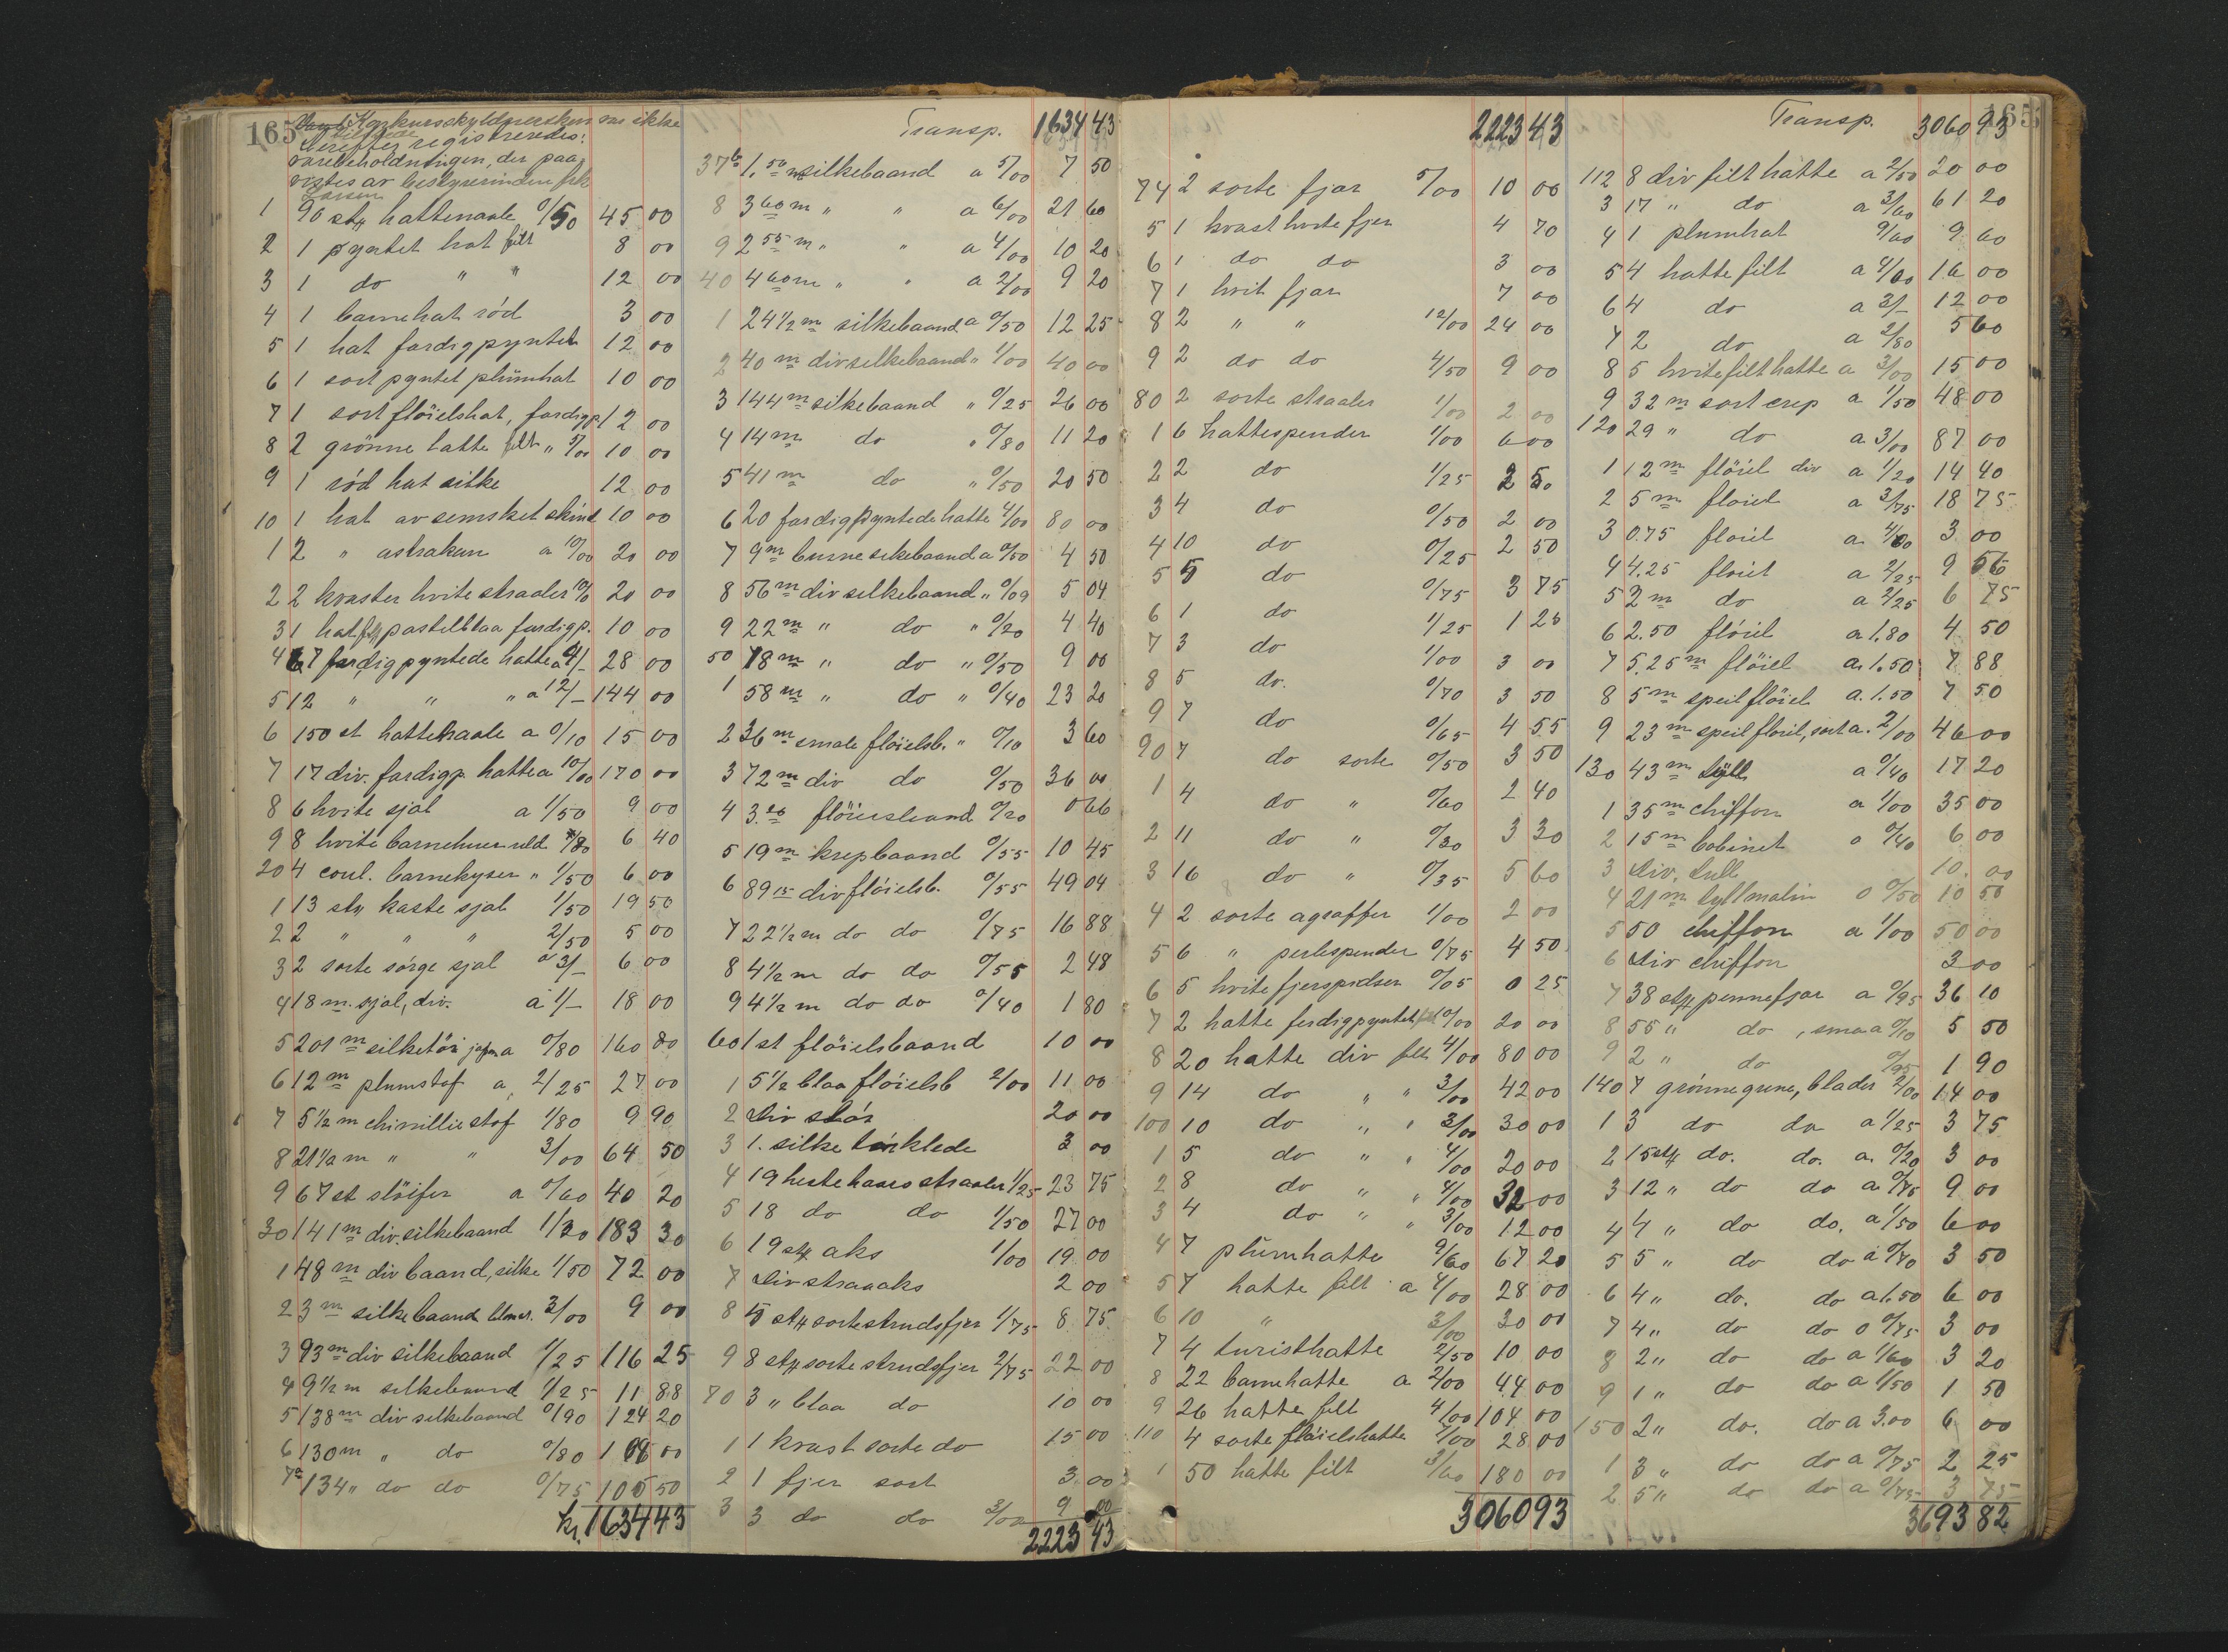 165 Konkursskyldnersken var ikke
tilstede
Derefter registreredes:
varebeholdningen, der paa-
vistes av bestyrerinden frk
Larsen
1 90 stk hattenaale 0/50 45 00
2 1 pyntet hat filt 8 00
3 1 do " " 12 00
4 1 barnehat röd 3 00
5 1 hat færdigpyntet 12 00
6 1 sort pyntet plümhat 10 00
7 1 sort flöielshat, færdigp 12 00
8 2 grönne hatte filt " 5/00 10 00
9 1 röd hat silke 12 00
10 1 hat av semsket skind 10 00
1 2 " astrakan a 10/00 20 00
2 2 kvaster hvite straaler 10/0 20 00
3 1 hat filt pastelblaa færdigp. 10 00
4 7 færdigpyntede hatte a 4/- 28 00
5 12 " " " a 12/- 144 00
6 150 st hattenaale a 0/10 15 00
7 17 div. færdigp. hatte a 10/00 170 00
8 6 hvite sjal a 1/50 9 00
9 8 hvite barnehuer uld 0/80 6 40
20 4 coul. barnekyser " 1/50 6 00
1 13 stk kaste sjal 1/50 19 50
2 2 " " " 2/50 5 00
3 2 sorte sörge sjal a 3/- 6 00
4 18 m. sjal, div. a 1/- 18 00
5 201 m silketöi japan a 0/80 160 80
6 12 m plumstof a 2/25 27 00
7 5 1/2 m chinillie stof 1/80 9 90
8 21 1/2 m " " 3/00 64 50
9 67 st slöifer a 0/60 40 20
30 141 m div. silkebaand 1/30 183 30
1 48 m div baand, silke 1/50 72 00
2 3 m silkebaand blmst. 3/00 9 00
3 93 m div silkebaand 1/25 116 25
4 9 1/2 m silkebaand 1/25 11 88
5 138 m div silkebaand 0/90 124 20
6 130 m " do 0/80 104 00
7a 134 " do do 0/75 100 50
kr. 1634 43
Transp. 1634 43
37b 1.50 m silkebaand a 5/00 7 50
8 3 60 m " " a 6/00 21 60
9 2 55 m " " a 4/00 10 20
40 4 60 m " " a 2/00 9 20
1 24 1/2 m silkebaand a 0/50 12 25
2 40 m div silkebaand " 1/00 40 00
3 144 m silkebaand " 0/25 26 00
4 14 m do " 0/80 11 20
5 41 m do " 0/50 20 50
6 20 færdigpyntede hatte 4/00 80 00
7 9 m brune silkebaand a 0/50 4 50
8 56 m div silkebaand " 0/09 5 04
9 22 m " do " 0/20 4 40
50 18 m " do " 0/50 9 00
1 58 m " do " 0/40 23 20
2 36 m smale flöielsb. " 0/10 3 60
3 72 m div do 0/50 36 00
4 3. flöielsbaand 0/20 0 66
5 19 m krepbaand 0/55 10 45
6 89 15 div flöielsb. 0/55 49 04
7 22 1/2 m do do 0/75 16 88
8 4 1/2 m do do 0/55 2 48
9 4 1/2 m do do 0/40 1 80
60 1 st flöielsbaand 10 00
1 5 1/2 blaa flöielsb 2/00 11 00
2 Div slör 20 00
3 1. silke törklede 3 00
4 19 hestehaars straaler 1/25 23 75
5 18 do do 1/50 27 00
6 19 stk aks 1/00 19 00
7 Div straaaks 2 00
8 5 stk sorte strudsfjer 1/75 8 75
9 8 stk sorte strudsfjer 2/75 22 00
70 3 " blaa do 10 00
1 1 kvast sorte do 15 00
2 1 fjer sort 3 00
3 3 do do 3/00 9 00
2223 43
2223 43
74 2 sorte fjær 5/00 10 00
5 1 kvast hvite fjer 4 70
6 1 do do 3 00
7 1 hvit fjær 7 00
8 2 " " 12/00 24 00
9 2 do do 4/50 9 00
80 2 sorte straaler 1/00 2 00
1 6 hattespender 1/00 6 00
2 2 do 1/25 2 50
3 4 do 0/50 2 00
4 10 do 0/25 2 50
5 5 do 0/75 3 75
6 1 do 1/25 1 25
7 3 do 1/00 3 00
8 5 do. 0/70 3 50
9 7 do 0/65 4 55
90 7 do sorte 0/50 3 50
1 4 do " 0/60 2 40
2 11 do " 0/30 3 30
3 16 do " 0/35 5 60
4 2 sorte agraffer 1/00 2 00
5 6 " perlespender 0/75 4 50
6 5 hvite fjerspidser 0/05 0 25
7 2 hatte ferdigpyntet filt 10/00 20 00
8 20 hatte div filt 4/00 80 00
9 14 do " " 3/00 42 00
100 10 do " " 3/00 30 00
1 5 do " " 4/00 20 00
2 8 do " " 4/00 32 00
3 4 do " " 3/00 12 00
4 7 plümhatte 9/60 67 20
5 7 hatte filt a 4/00 28 00
6 10 " 3/00 30 00
7 4 turisthatte 2/50 10 00
8 22 barnehatte a 2/00 44 00
9 26 hatte filt 4/00 104 00
110 4 sorte flöielshatte 7/00 28 00
1 50 hatte filt 3/60 180 00
3060 93
Transp. 3060 93 165
112 8 div filthatte a 2/50 20 00
3 17 " do a 3/60 61 20
4 1 plumhat 9/60 9 60
5 4 hatte filt a 4/00 16 00
6 4 do a 3/- 12 00
7 2 do a 2/80 5 60
8 5 hvite filthatte a 3/00 15 00
9 32 m sort crep a 1/50 48 00
120 29 " do a 3/00 87 00
1 12 m flöiel div a 1/20 14 40
2 5 m flöiel a 3/75 18 75
3 0.75 flöiel a. 4/00 3 00
4 4.25 flöiel a 2/25 9 56
5 2 m do a 2/25 6 75
6 2.50 flöiel a 1.80 4 50
7 5.25 m flöiel a. 1.50 7 88
8 5 m speilflöiel a. 1.50 7 50
9 23 m speilflöiel, sort a. 2/00 46 00
130 43 m tyll a 0/40 17 20
1 35 m chiffon a 1/00 35 00
2 15 m bobinet a 0/40 6 00
3 Div. tull 10. 00
4 21 m tyllmalin a 0/50 10 50
5 50 chiffon a 1/00 50 00
6 Div chiffon 3 00
7 38 stk pennefjær a 0/95 36 10
8 55 " do, smaa 0/10 5 50
9 2 " do 0/95 1 90
140 7 grönne grene, blader 2/00 14 00
1 3 do do a 1/25 3 75
2 15 stk do. do. a. 0/20 3 00
3 12 " do do a 0/75 9 00
4 4 " do do. a 1/50 6 00
5 5 " do do a 0/70 3 50
6 4 " do. do a 1.50 6 00
7 4 " do do a 0/75 3 00
8 2 " do do a 1/60 3 20
9 1 " do do a 1/50 1 50
150 2 " do. do a 3.00 6 00
1 3 " do do a 0/75 2 25
2 5 " do do a 0/75 3 75
3693 82